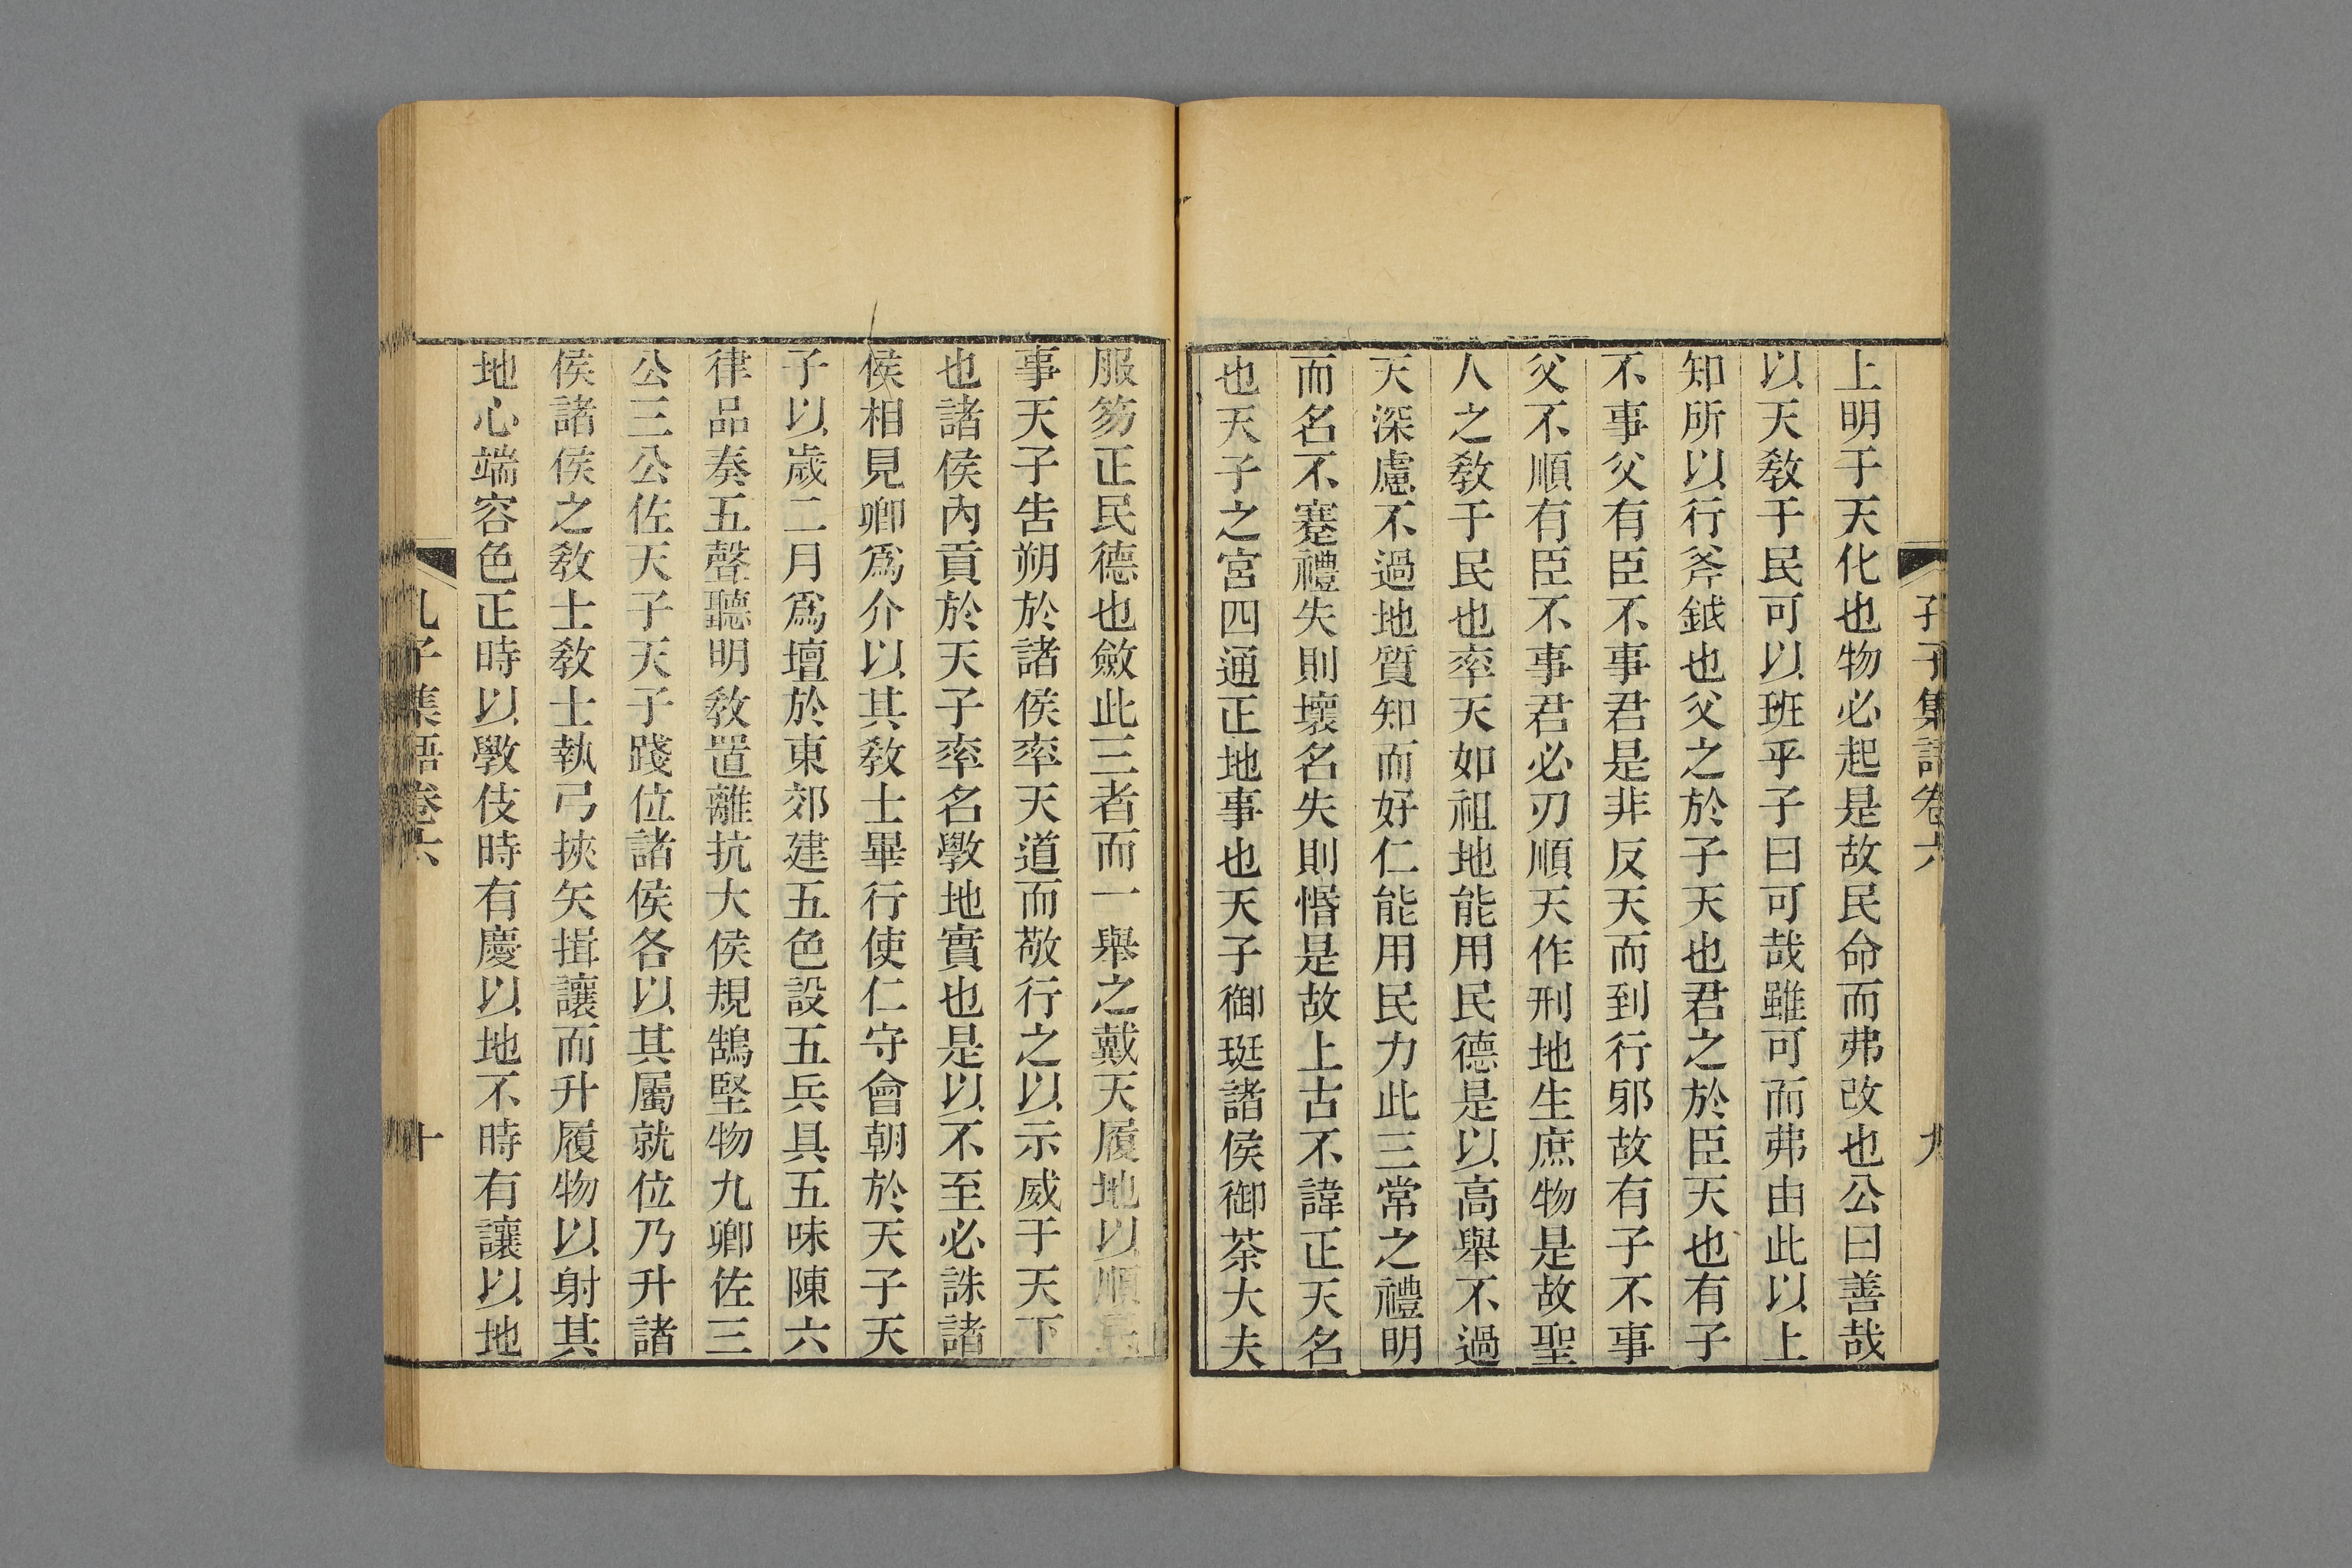 孔子集語卷六 九
上明于天化也物必起是故民命而弗改也公曰善哉
以天敎于民可以班乎子曰可哉雖可而弗由此以上
知所以行斧鉞也父之於子天也君之於臣天也有子
不事父有臣不事君是非反天而到行邪故有子不事
父不順有臣不事君必刃順天作刑地生庶物是故聖
人之敎于民也率天如祖地能用民德是以高舉不過
天深慮不過地質知而好仁能用民力此三常之禮明
而名不蹇禮失則壞名失則惛是故上古不諱正天名
也天子之宮四通正地事也天子御珽諸侯御荼大夫
服笏正民德也斂此三者而一舉之戴天履地以順民
事天子告朔於諸侯率天道而敬行之以示威于天下
也諸侯內貢於天子率名斆地實也是以不至必誅諸
侯相見卿爲介以其敎士畢行使仁守會朝於天子天
子以歲二月爲壇於東郊建五色設五兵具五味陳六
律品奏五聲聽明敎置離抗大侯規鵠堅物九卿佐三
公三公佐天子天子踐位諸侯各以其屬就位乃升諸
侯諸侯之敎士敎士執弓挾矢揖讓而升履物以射其
地心端容色正時以斆伎時有慶以地不時有讓以地
孔子集語卷六 十